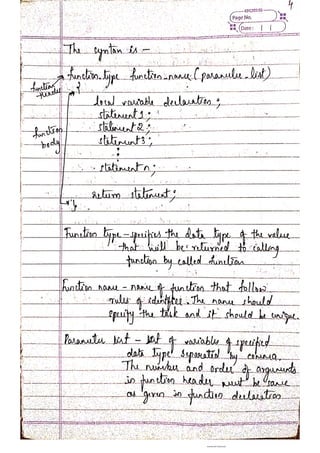 4
Page No.
Date: | |
The syntax is –
function_type function_name (parameter_list)
function header
{
local variable declaration;
statement 1;
function body
statement 2;
statement 3;
⋮
statement n;
return statement;
}
Function type - specifies the data type of the value
that will be returned to calling
function by called function
Function name - name of function that follow
rules of identifier. The name should
specify the task and it should be unique.
Parameter list - list of variables of specified
data type separated by comma.
The number and order of arguments
in function header must be same
as given in function declaration